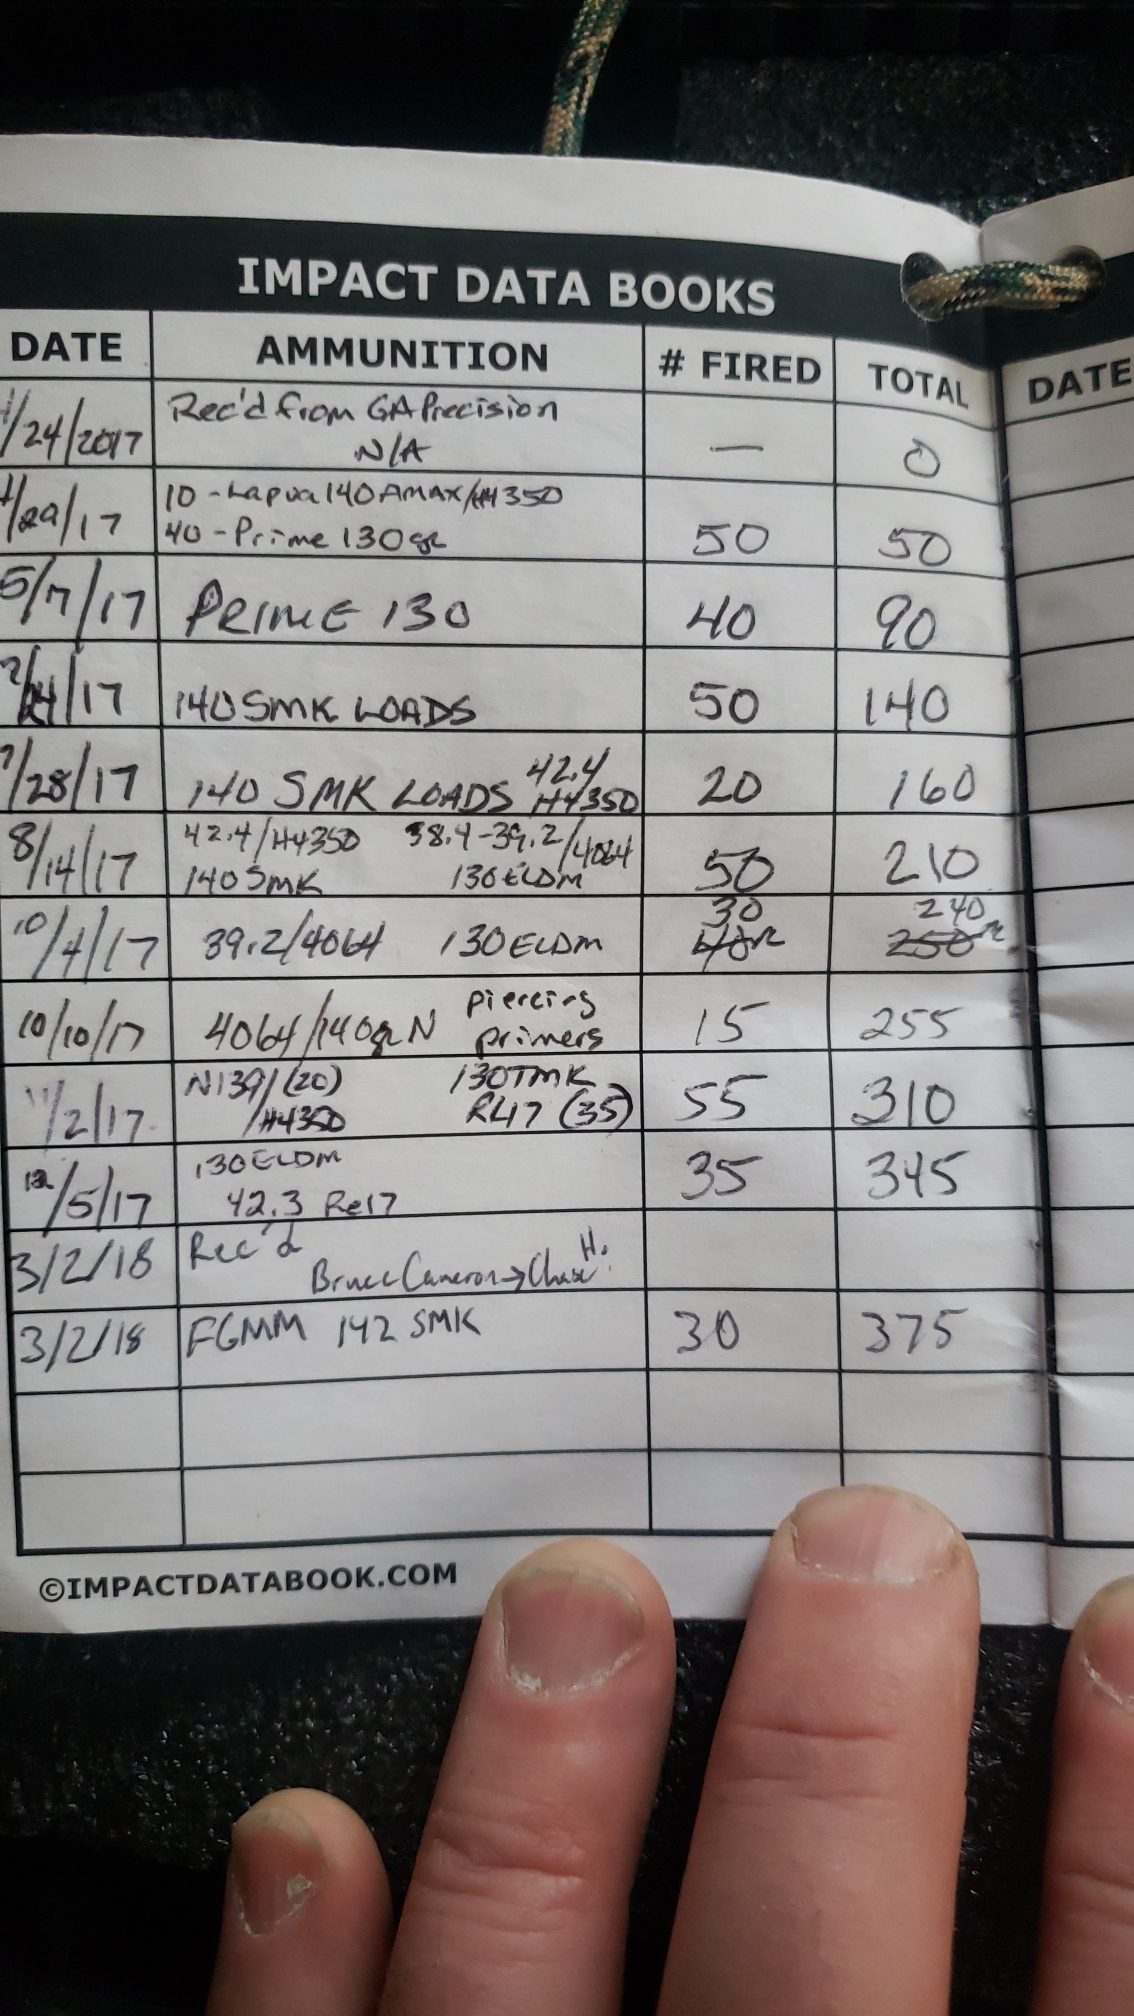 IMPACT DATA BOOKS
DATE AMMUNITION # FIRED TOTAL DATE
1/24/2017 Rec'd from GA Precision
N/A — 0
/29/17 10 - Lapua 140 AMAX/H4350
40 - Prime 130gr 50 50
5/7/17 PRIME 130 40 90
7/24/17 140 SMK LOADS 50 140
7/28/17 140 SMK LOADS 42.4 H4350 20 160
8/14/17 42.4/H4350 38.4-39.2/4064
140 SMK 130 ELDM 50 210
30 240
10/4/17 39.2/4064 130 ELDM 40 250
10/10/17 4064/140gr N piercing
primers 15 255
11/2/17 N139/(20) 130TMK
/H4350 RL17 (35) 55 310
12/5/17 130 ELDM
42.3 Re17 35 345
3/2/18 Rec'd
Bruce Cameron → Chase H.
3/2/18 FGMM 142 SMK 30 375
©IMPACTDATABOOK.COM